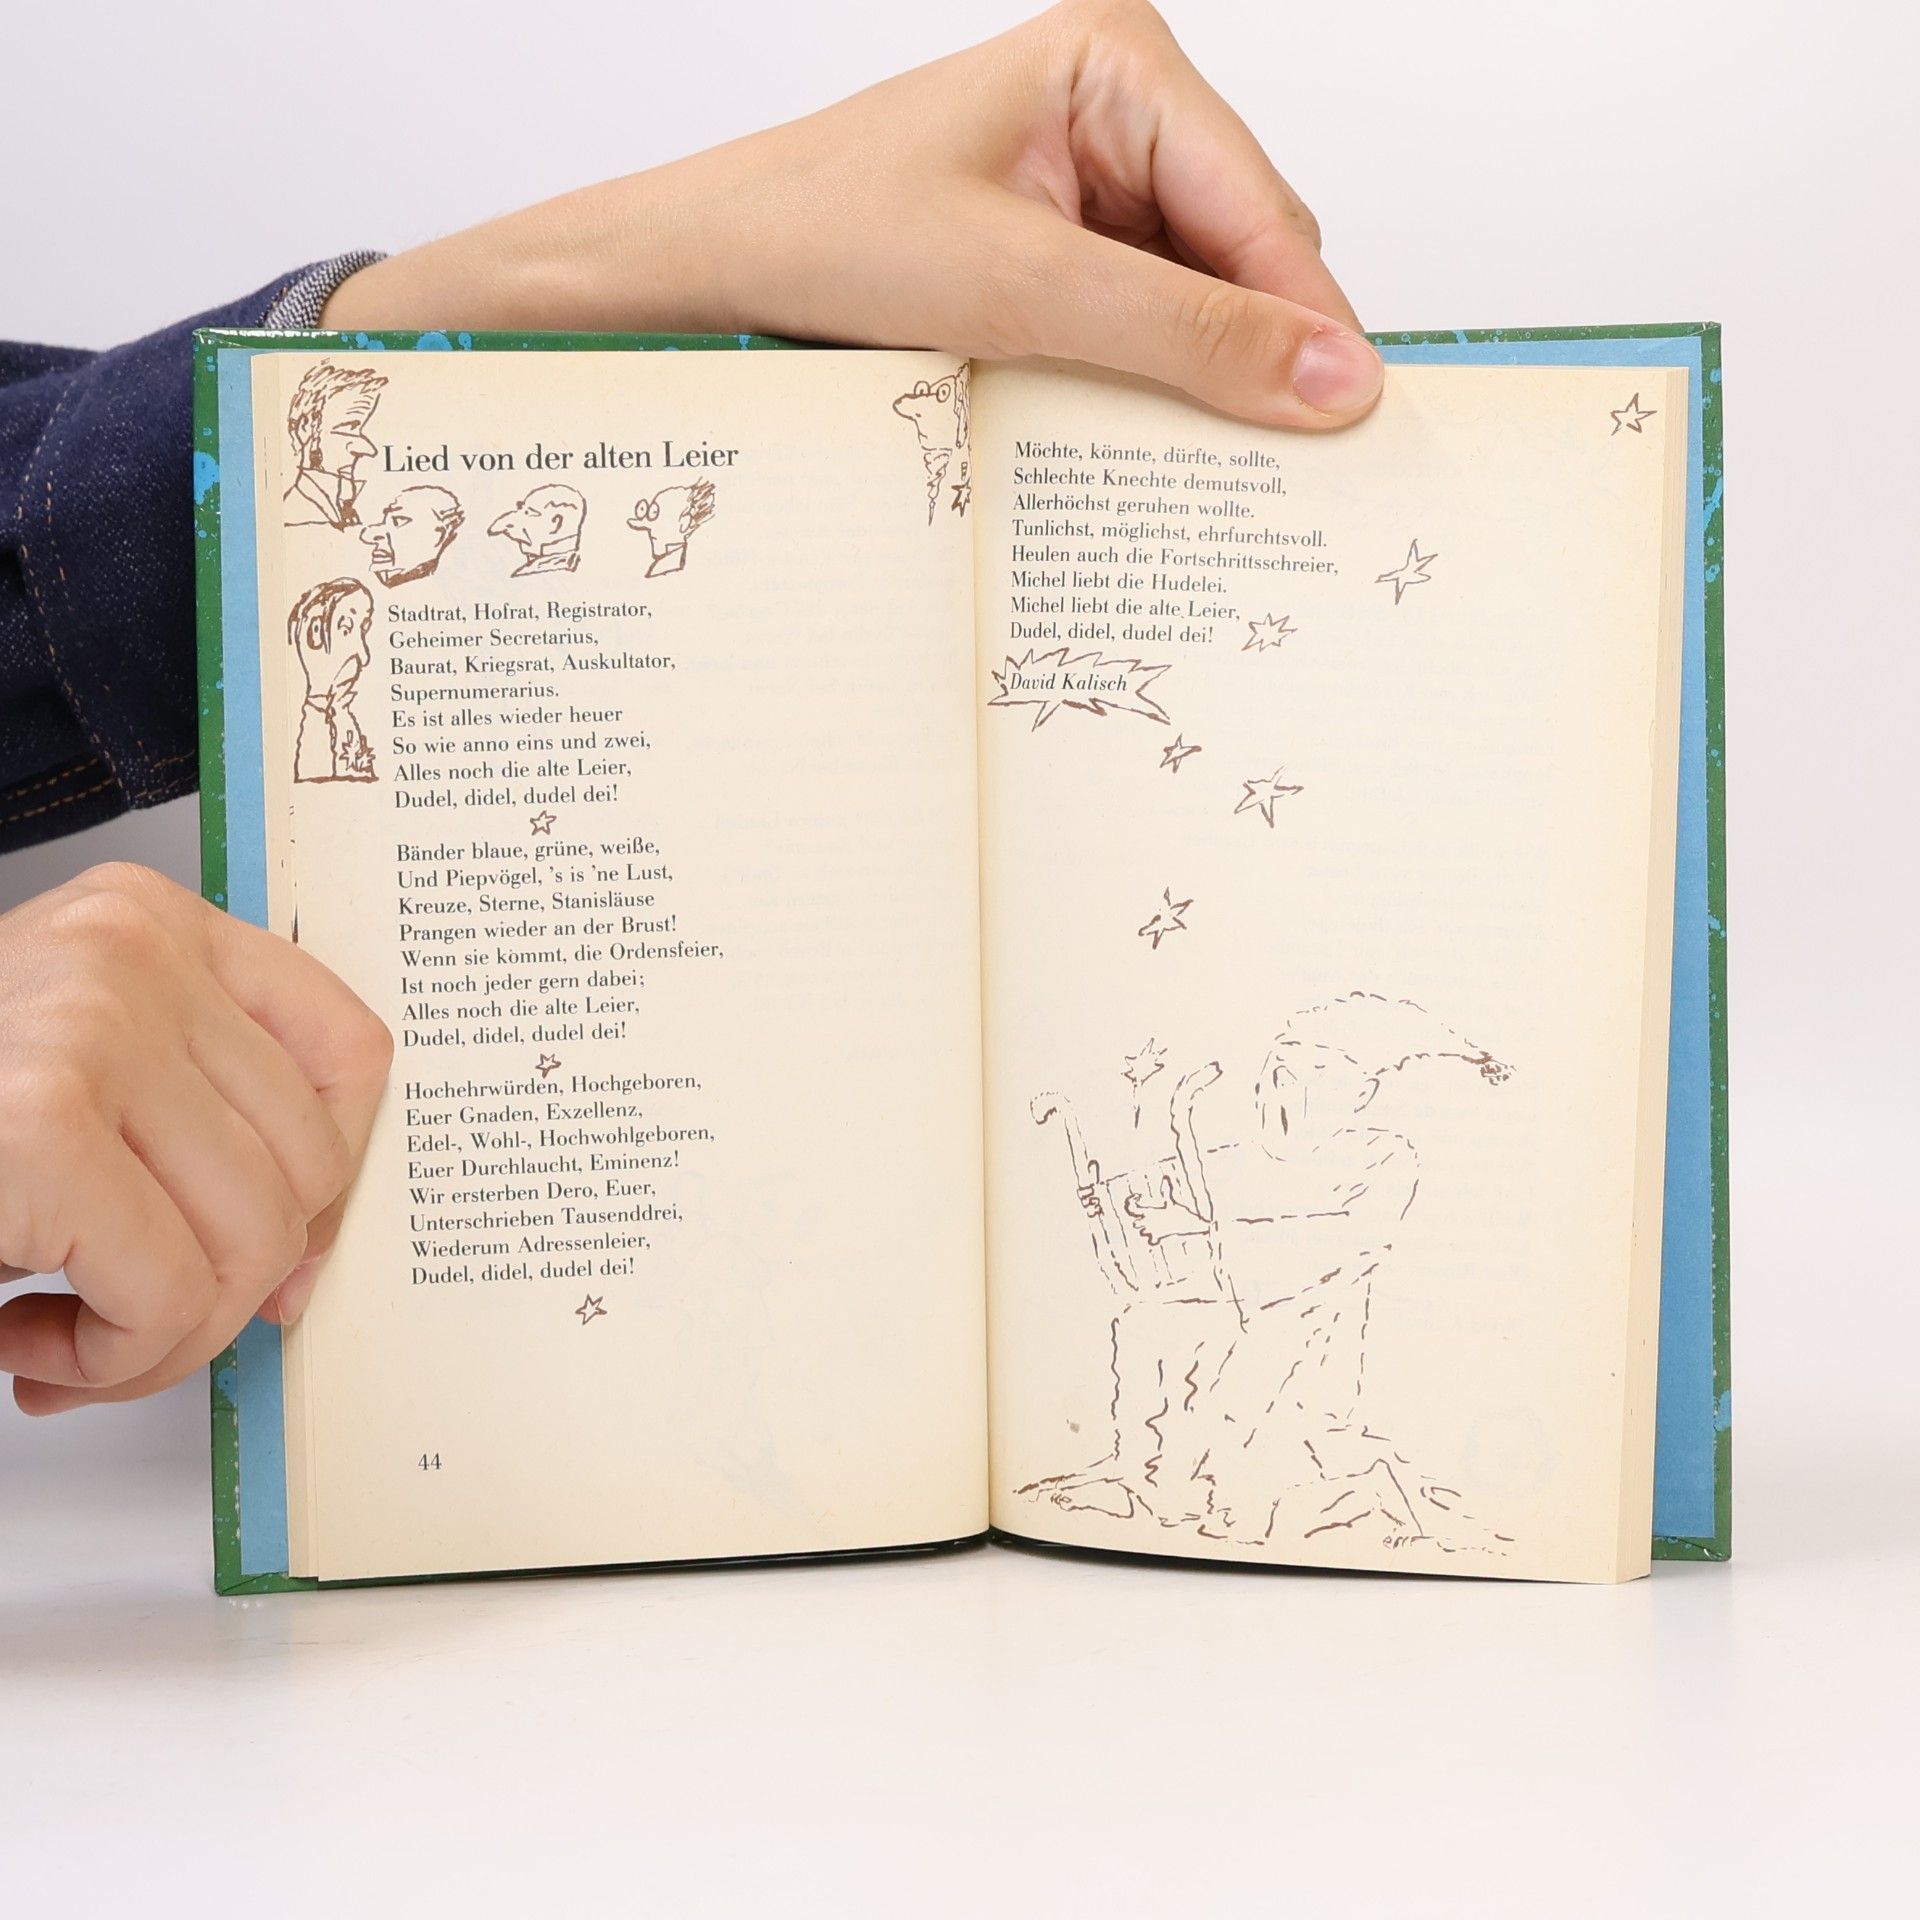 Lied von der alten Leier
Stadtrat, Hofrat, Registrator,
Geheimer Secretarius,
Baurat, Kriegsrat, Auskultator,
Supernumerarius.
Es ist alles wieder heuer
So wie anno eins und zwei,
Alles noch die alte Leier,
Dudel, didel, dudel dei!
Bänder blaue, grüne, weiße,
Und Piepvögel, ’s is ’ne Lust,
Kreuze, Sterne, Stanisläuse
Prangen wieder an der Brust!
Wenn sie kommt, die Ordensfeier,
Ist noch jeder gern dabei;
Alles noch die alte Leier,
Dudel, didel, dudel dei!
Hochehrwürden, Hochgeboren,
Euer Gnaden, Exzellenz,
Edel-, Wohl-, Hochwohlgeboren,
Euer Durchlaucht, Eminenz!
Wir ersterben Dero, Euer,
Unterschrieben Tausenddrei,
Wiederum Adressenleier,
Dudel, didel, dudel dei!
44
Möchte, könnte, dürfte, sollte,
Schlechte Knechte demutsvoll,
Allerhöchst geruhen wollte.
Tunlichst, möglichst, ehrfurchtsvoll.
Heulen auch die Fortschrittsschreier,
Michel liebt die Hudelei.
Michel liebt die alte Leier,
Dudel, didel, dudel dei!
David Kalisch